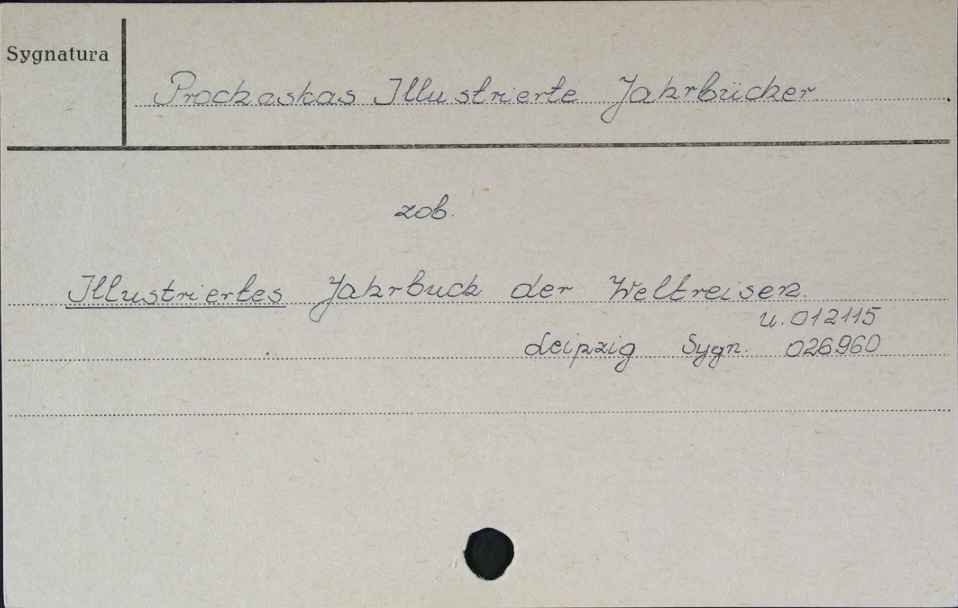 Sygnatura
Prochaskas Illustrierte Jahrbücher
zob.
Illustriertes Jahrbuch der Weltreisen.
u. 012115
Leipzig Sygn. 026960